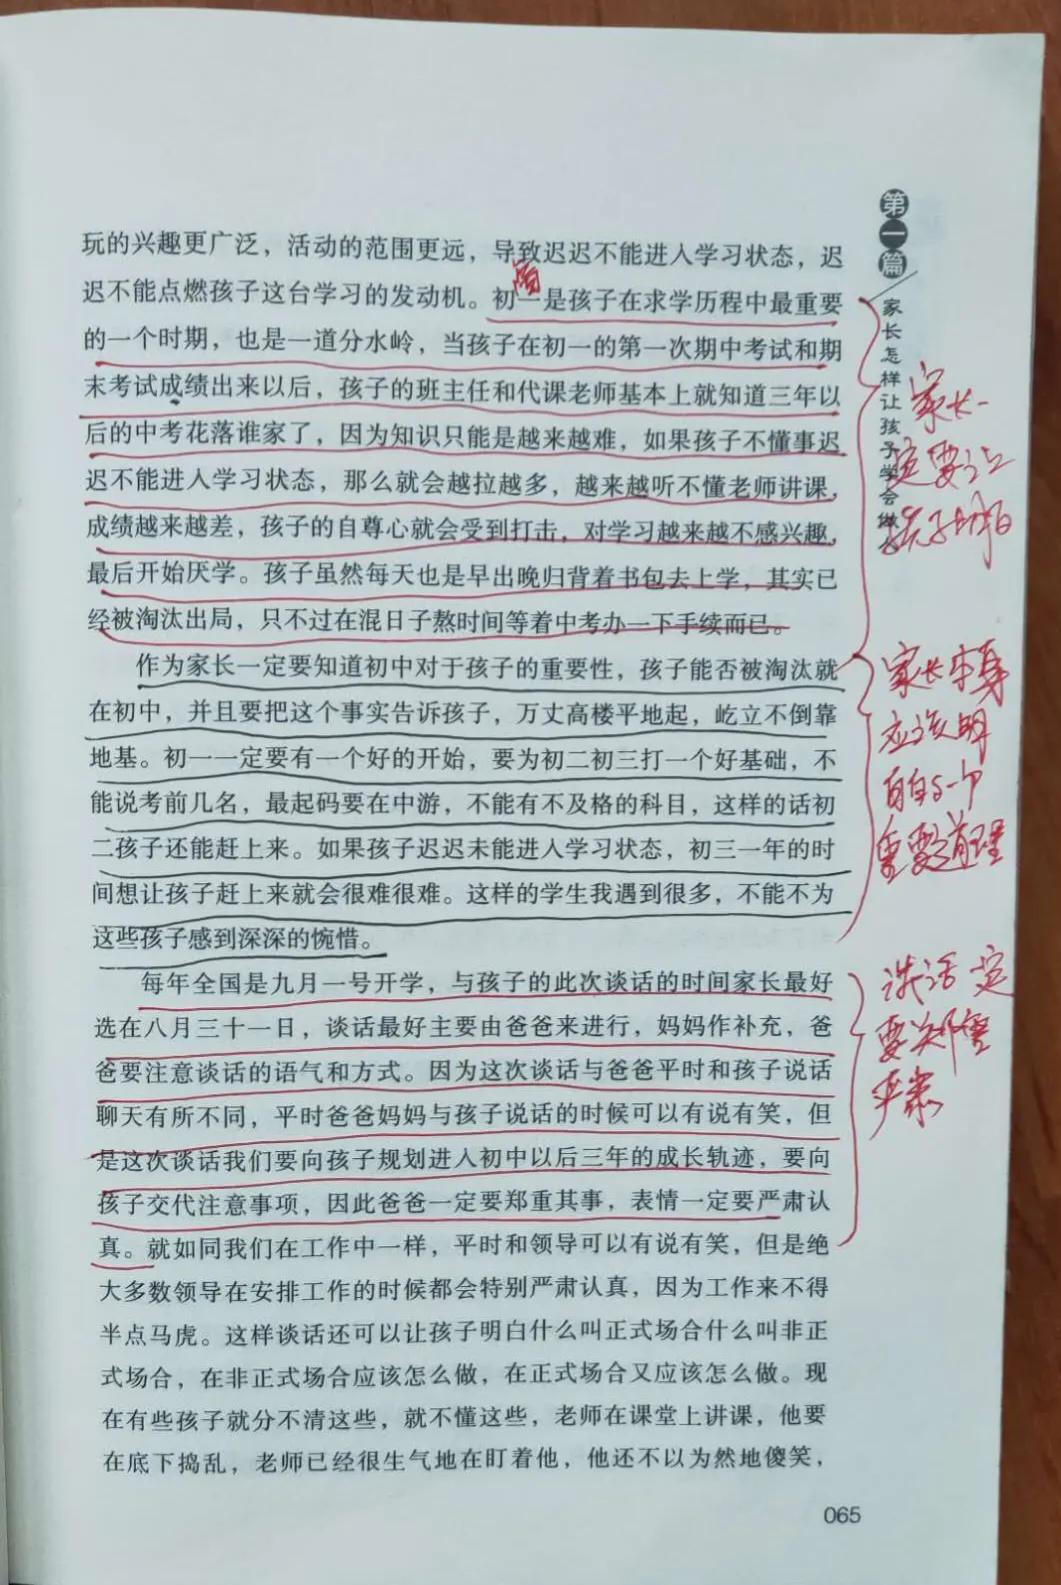 玩的兴趣更广泛，活动的范围更远，导致迟迟不能进入学习状态，迟
迟不能点燃孩子这台学习的发动机。初一是孩子在求学历程中最重要
的一个时期，也是一道分水岭，当孩子在初一的第一次期中考试和期
末考试成绩出来以后，孩子的班主任和代课老师基本上就知道三年以
后的中考花落谁家了，因为知识只能是越来越难，如果孩子不懂事迟
迟不能进入学习状态，那么就会越拉越多，越来越听不懂老师讲课，
成绩越来越差，孩子的自尊心就会受到打击，对学习越来越不感兴趣，
最后开始厌学。孩子虽然每天也是早出晚归背着书包去上学，其实已
经被淘汰出局，只不过在混日子熬时间等着中考办一下手续而已。
作为家长一定要知道初中对于孩子的重要性，孩子能否被淘汰就
在初中，并且要把这个事实告诉孩子，万丈高楼平地起，屹立不倒靠
地基。初一一定要有一个好的开始，要为初二初三打一个好基础，不
能说考前几名，最起码要在中游，不能有不及格的科目，这样的话初
二孩子还能赶上来。如果孩子迟迟未能进入学习状态，初三一年的时
间想让孩子赶上来就会很难很难。这样的学生我遇到很多，不能不为
这些孩子感到深深的惋惜。
每年全国是九月一号开学，与孩子的此次谈话的时间家长最好
选在八月三十一日，谈话最好主要由爸爸来进行，妈妈作补充，爸
爸要注意谈话的语气和方式。因为这次谈话与爸爸平时和孩子说话
聊天有所不同，平时爸爸妈妈与孩子说话的时候可以有说有笑，但
是这次谈话我们要向孩子规划进入初中以后三年的成长轨迹，要向
孩子交代注意事项，因此爸爸一定要郑重其事，表情一定要严肃认
真。就如同我们在工作中一样，平时和领导可以有说有笑，但是绝
大多数领导在安排工作的时候都会特别严肃认真，因为工作来不得
半点马虎。这样谈话还可以让孩子明白什么叫正式场合什么叫非正
式场合，在非正式场合应该怎么做，在正式场合又应该怎么做。现
在有些孩子就分不清这些，就不懂这些，老师在课堂上讲课，他要
在底下捣乱，老师已经很生气地在盯着他，他还不以为然地傻笑，
065
第一篇
家长怎样让孩子学会做人
家长一
定要让
孩子明白
家长本身
应该明
白的一个
重要道理
谈话一定
要郑重
严肃